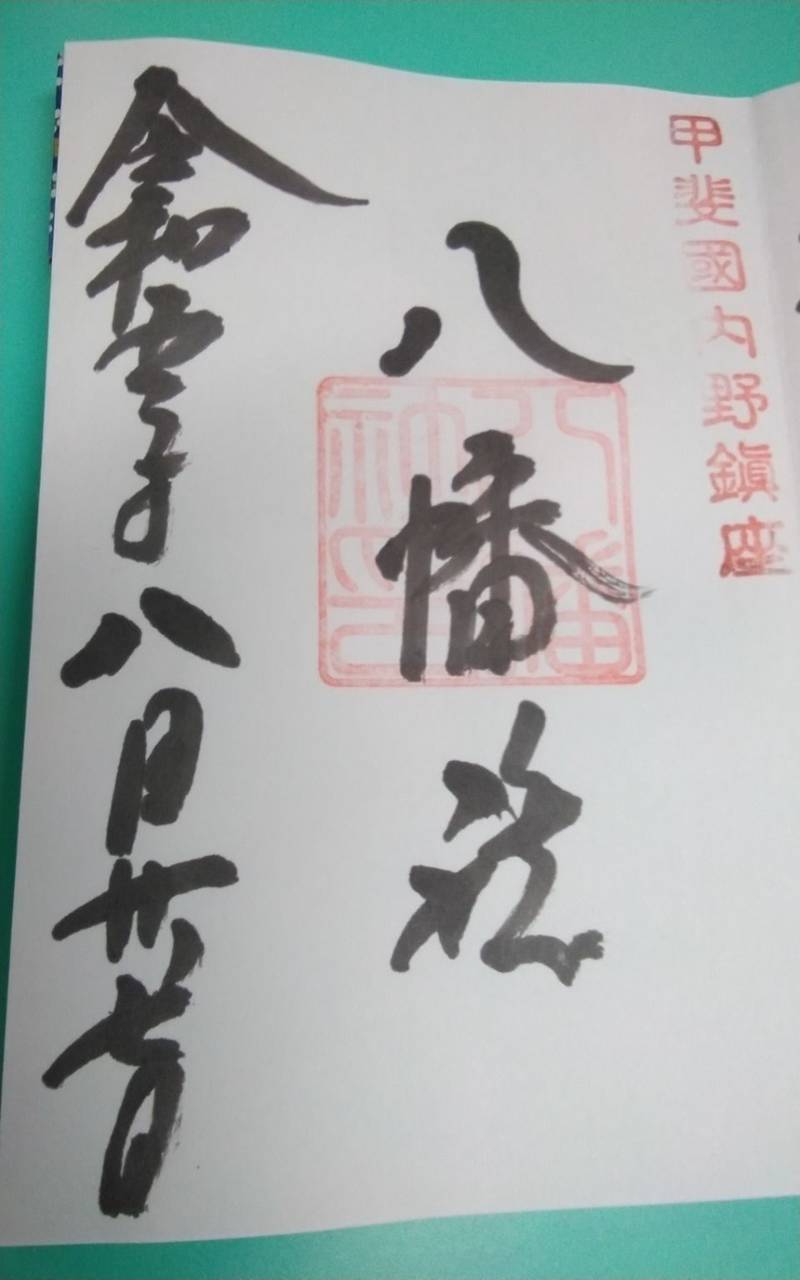 甲斐國内野鎭座
八幡社
八幡神印
令和元年八月廿七日